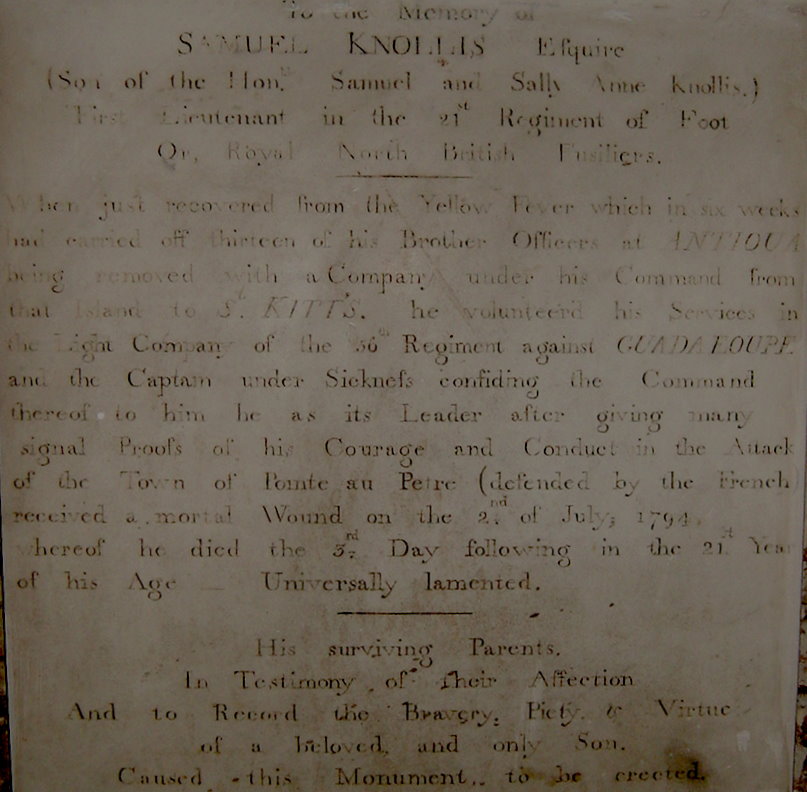 To the Memory of
SAMUEL KNOLLIS Eſquire
(Son of the Hon. Samuel and Sally Anne Knollis.)
First Lieutenant in the 21st Regiment of Foot
Or, Royal North British Fusiliers.
When just recovered from the Yellow Fever which in six weeks
had carried off thirteen of his Brother Officers at ANTIQUA
being removed with a Company under his Command from
that Island to St. KITTS. he volunteerd his Services in
the Light Company of the 36th Regiment against GUADALOUPE
and the Captain under Sickneſs confiding the Command
thereof to him he as its Leader after giving many
signal Proofs of his Courage and Conduct in the Attack
of the Town of Pointe au Petre (defended by the French
received a mortal Wound on the 2nd. of July; 1794.
whereof he died the 3rd. Day following in the 21st Year
of his Age Universally lamented.
His surviving Parents.
In Testimony of their Affection
And to Record the Bravery, Piety, & Virtue
of a beloved, and only Son.
Caused this Monument, to be erected.